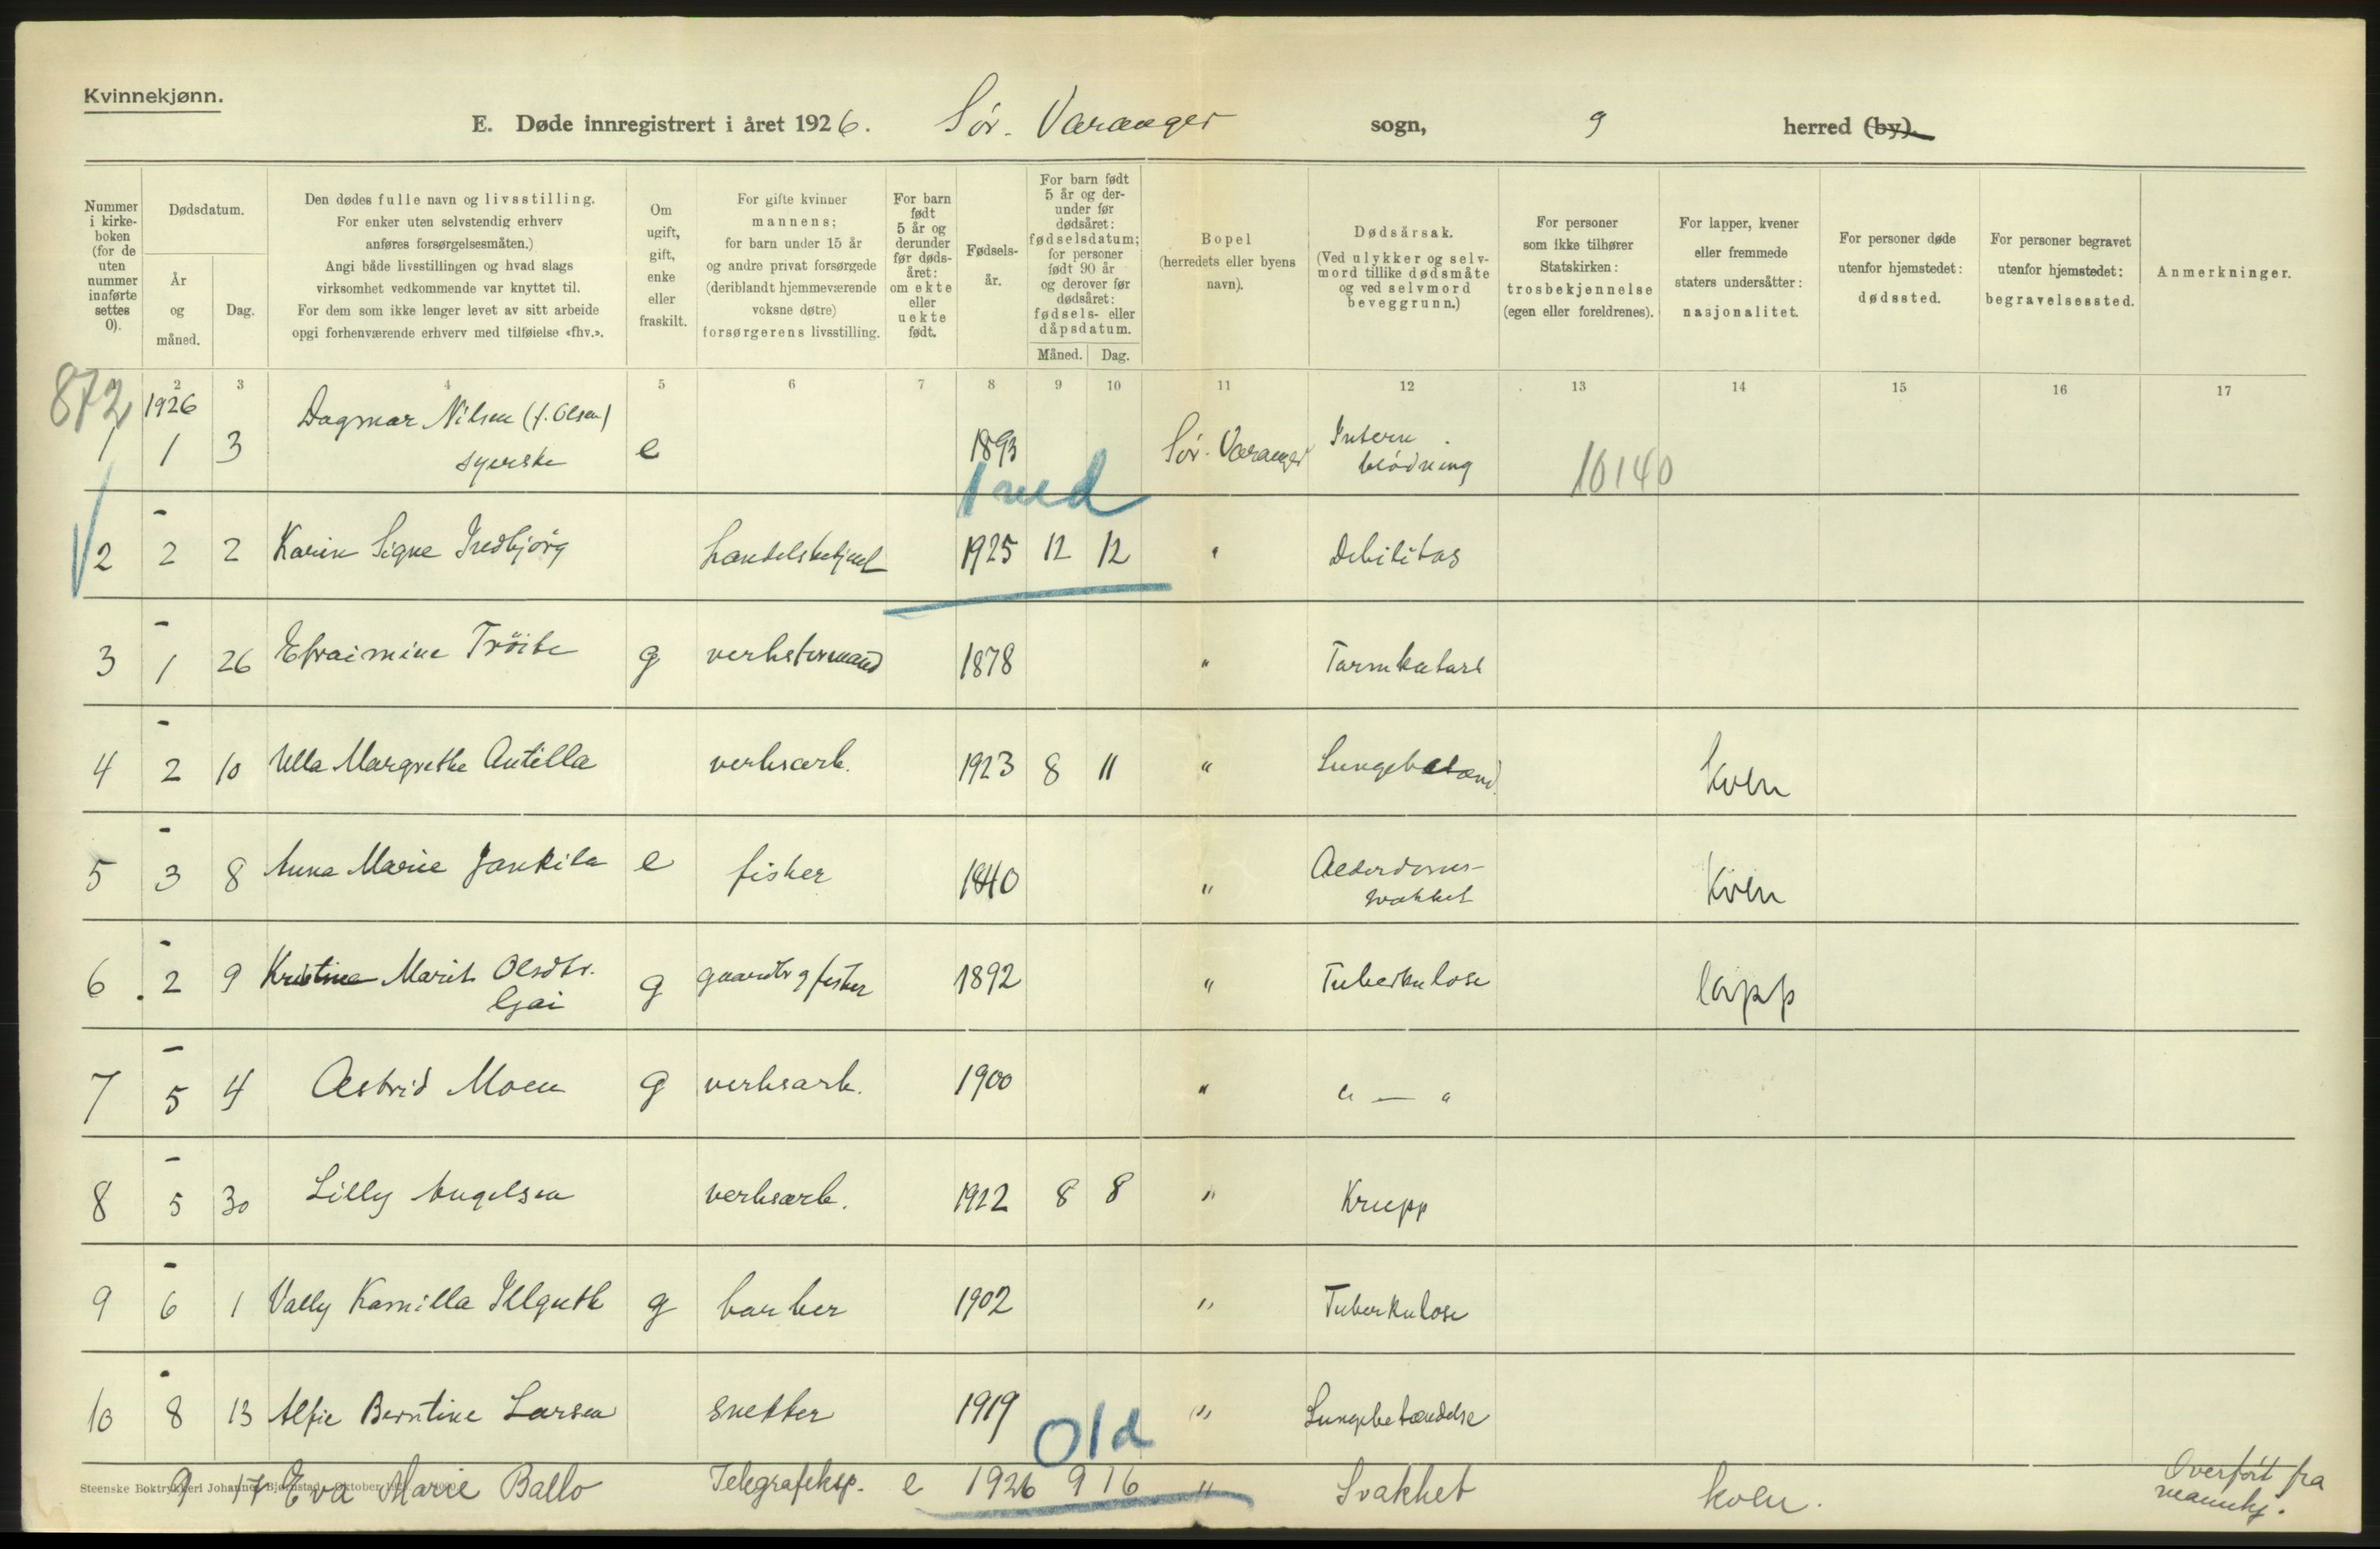 Kvinnekjønn.
E. Døde innregistrert i året 1926. Sör. Varanger sogn, 9 herred (by).
Nummer i kirkeboken (for de uten nummer innførte settes 0).
Dødsdatum.
År og måned.
Dag.
Den dødes fulle navn og livsstilling.
For enker uten selvstendig erhverv
anføres forsørgelsesmåten.)
Angi både livsstillingen og hvad slags
virksomhet vedkommende var knyttet til.
For dem som ikke lenger levet av sitt arbeide
opgi forhenværende erhverv med tilføielse «fhv.».
Om ugift, gift, enke eller fraskilt.
For gifte kvinner
mannens;
for barn under 15 år
og andre privat forsørgede
(deriblandt hjemmeværende
voksne døtre)
forsørgerens livsstilling.
For barn født 5 år og derunder før dødsåret: om ekte eller uekte født.
Fødselsår.
For barn født 5 år og derunder før dødsåret: fødselsdatum; for personer født 90 år og derover før dødsåret: fødsels- eller dåpsdatum.
Måned. Dag.
Bopel
(herredets eller byens
navn).
Dødsårsak.
(Ved ulykker og selvmord tillike dødsmåte
og ved selvmord
beveggrunn.)
For personer
som ikke tilhører
Statskirken:
trosbekjennelse
(egen eller foreldrenes).
For lapper, kvener
eller fremmede
staters undersåtter:
nasjonalitet.
For personer døde
utenfor hjemstedet:
dødssted.
For personer begravet
utenfor hjemstedet:
begravelsessted.
Anmerkninger.
2 3 4 5 6 7 8 9 10 11 12 13 14 15 16 17
872
1926
1 1 3 Dagmar Nilsen (f. Olsen) syerske e 1893 Sör. Varanger Intern blödning 10140
1 md
2 - 2 2 Karin Signe Inedbjörg handelsbetjent 1925 12 12 " Debilitas
3 - 1 26 Efraimine Tröite g verksformand 1878 " Tarmkatarh
4 - 2 10 Ulla Margrethe Antilla verksarb. 1923 8 11 " Lungebetænd. kven
5 - 3 8 Anna Marie Jankila e fisker 1840 " Alderdomssvakhet kven
6 - 2 9 Kristine Marit Olsdtr. g gaardbr og fisker 1892 " Tuberkulose lapp
7 - 5 4 Astrid Moen g verksarb. 1900 " " — "
8 - 5 30 Lilly Angelsen verksarb. 1922 8 8 " Krupp
9 - 6 1 Vally Kamilla Illguth g barber 1902 " Tuberkulose
10 - 8 13 Alfie Berntine Larsen snekker 1919 " Lungebetændelse
01d
9 17 Eva Marie Ballo Telegrafeksp. e 1926 9 16 " Svakhet kven. Overført fra mannkj.
Steenske Boktrykkeri Johannes Bjørnstad. Oktober